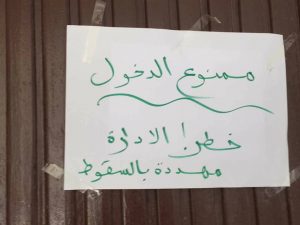 ممنوع الدخول
خطر! الادارة
مهددة بالسقوط